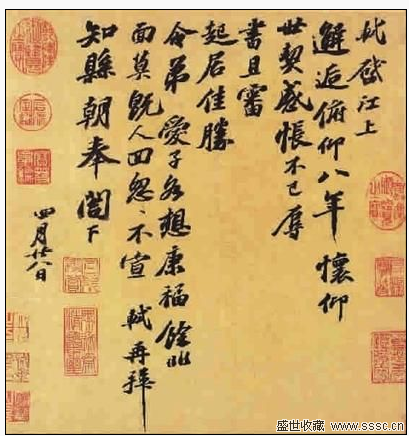 軾啓江上
邂逅俯仰八年懷仰
世契感悵不已辱
書且審
起居佳勝
令弟愛子各想康福餘非
面莫既人回怱〻不宣 軾再拜
知縣朝奉閣下
四月廿八日
盛世收藏 www.sssc.cn